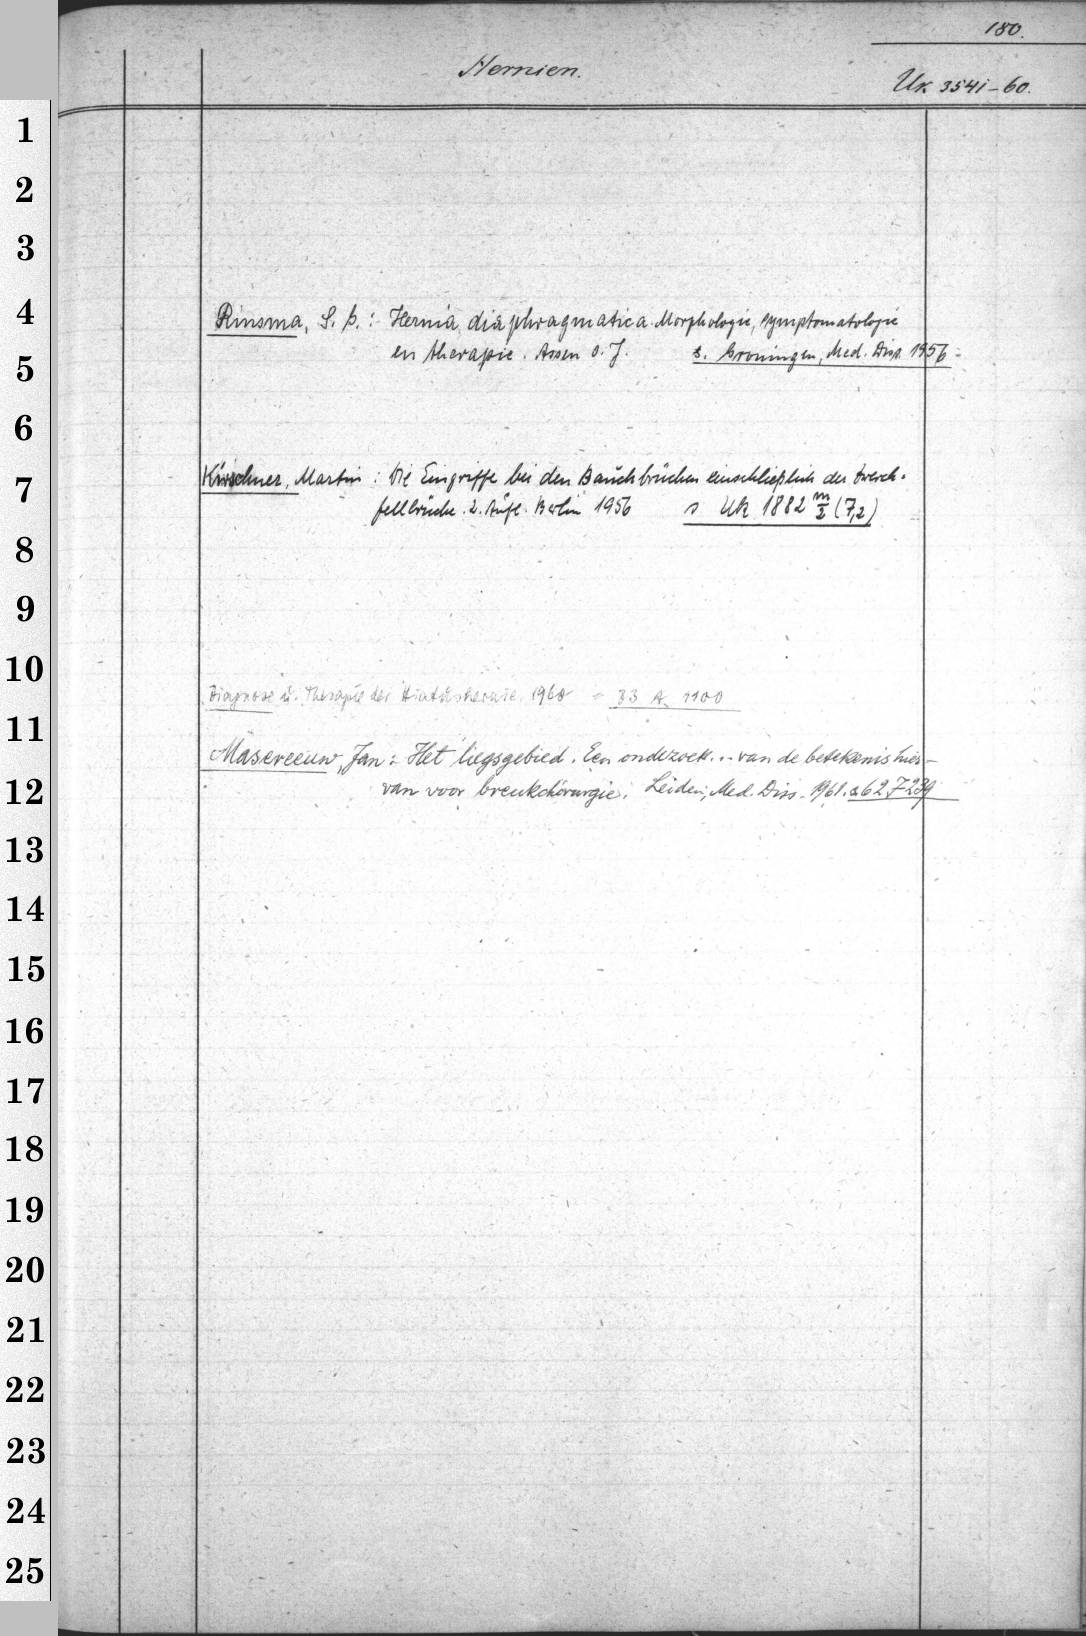 180.
Hernien.
Uk 3541-60.
1
2
3
4
Rinsma, S. P.: Hernia diaphragmatica. Morphologie, symptomatologie
en therapie. Assen o. J. s. Groningen, Med. Diss. 1956 =
5
6
7
Kirschner, Martin: Die Eingriffe bei den Bauchbrüchen einschließlich der Zwerch-
fellbrüche. 2. Aufl. Berlin 1956 s Uk 1882 m/2 (7,2)
8
9
10
Diagnose u. Therapie der Hiatushernie. 1960 = 33 A. 1100
11
Masereeuw, Jan: Het liesgebied. Een onderzoek ... van de betekenis hier-
12
van voor breukchirurgie. Leiden, Med. Diss. 1961. s 62 7239
13
14
15
16
17
18
19
20
21
22
23
24
25